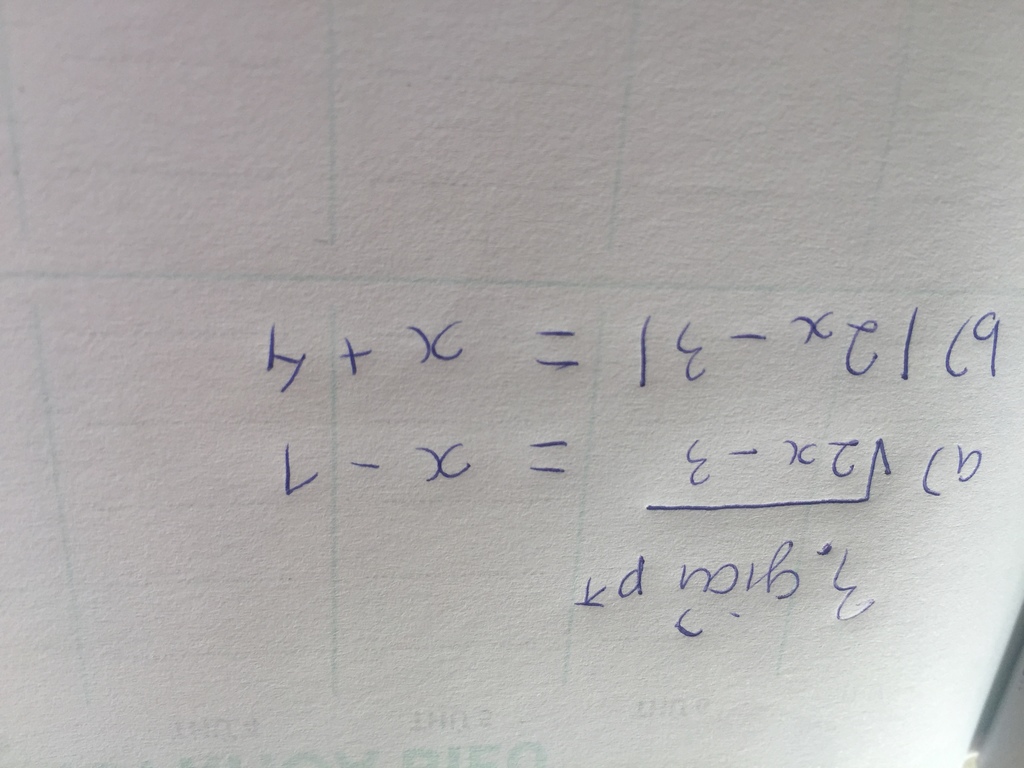 3. giải pt
a) √2x - 3 = x - 1
b) |2x - 3| = x + 4